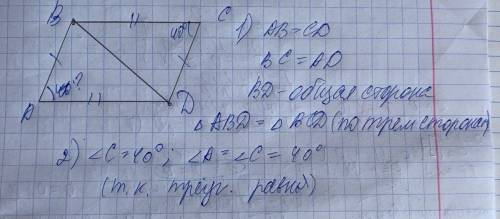 B C
40°
A 40°? D
1) AB=CD
BC=AD
BD-общая сторона
△ABD=△BCD (по трем сторонам)
2) ∠C=40°; ∠A=∠C=40°
(т.к. треуг. равны)